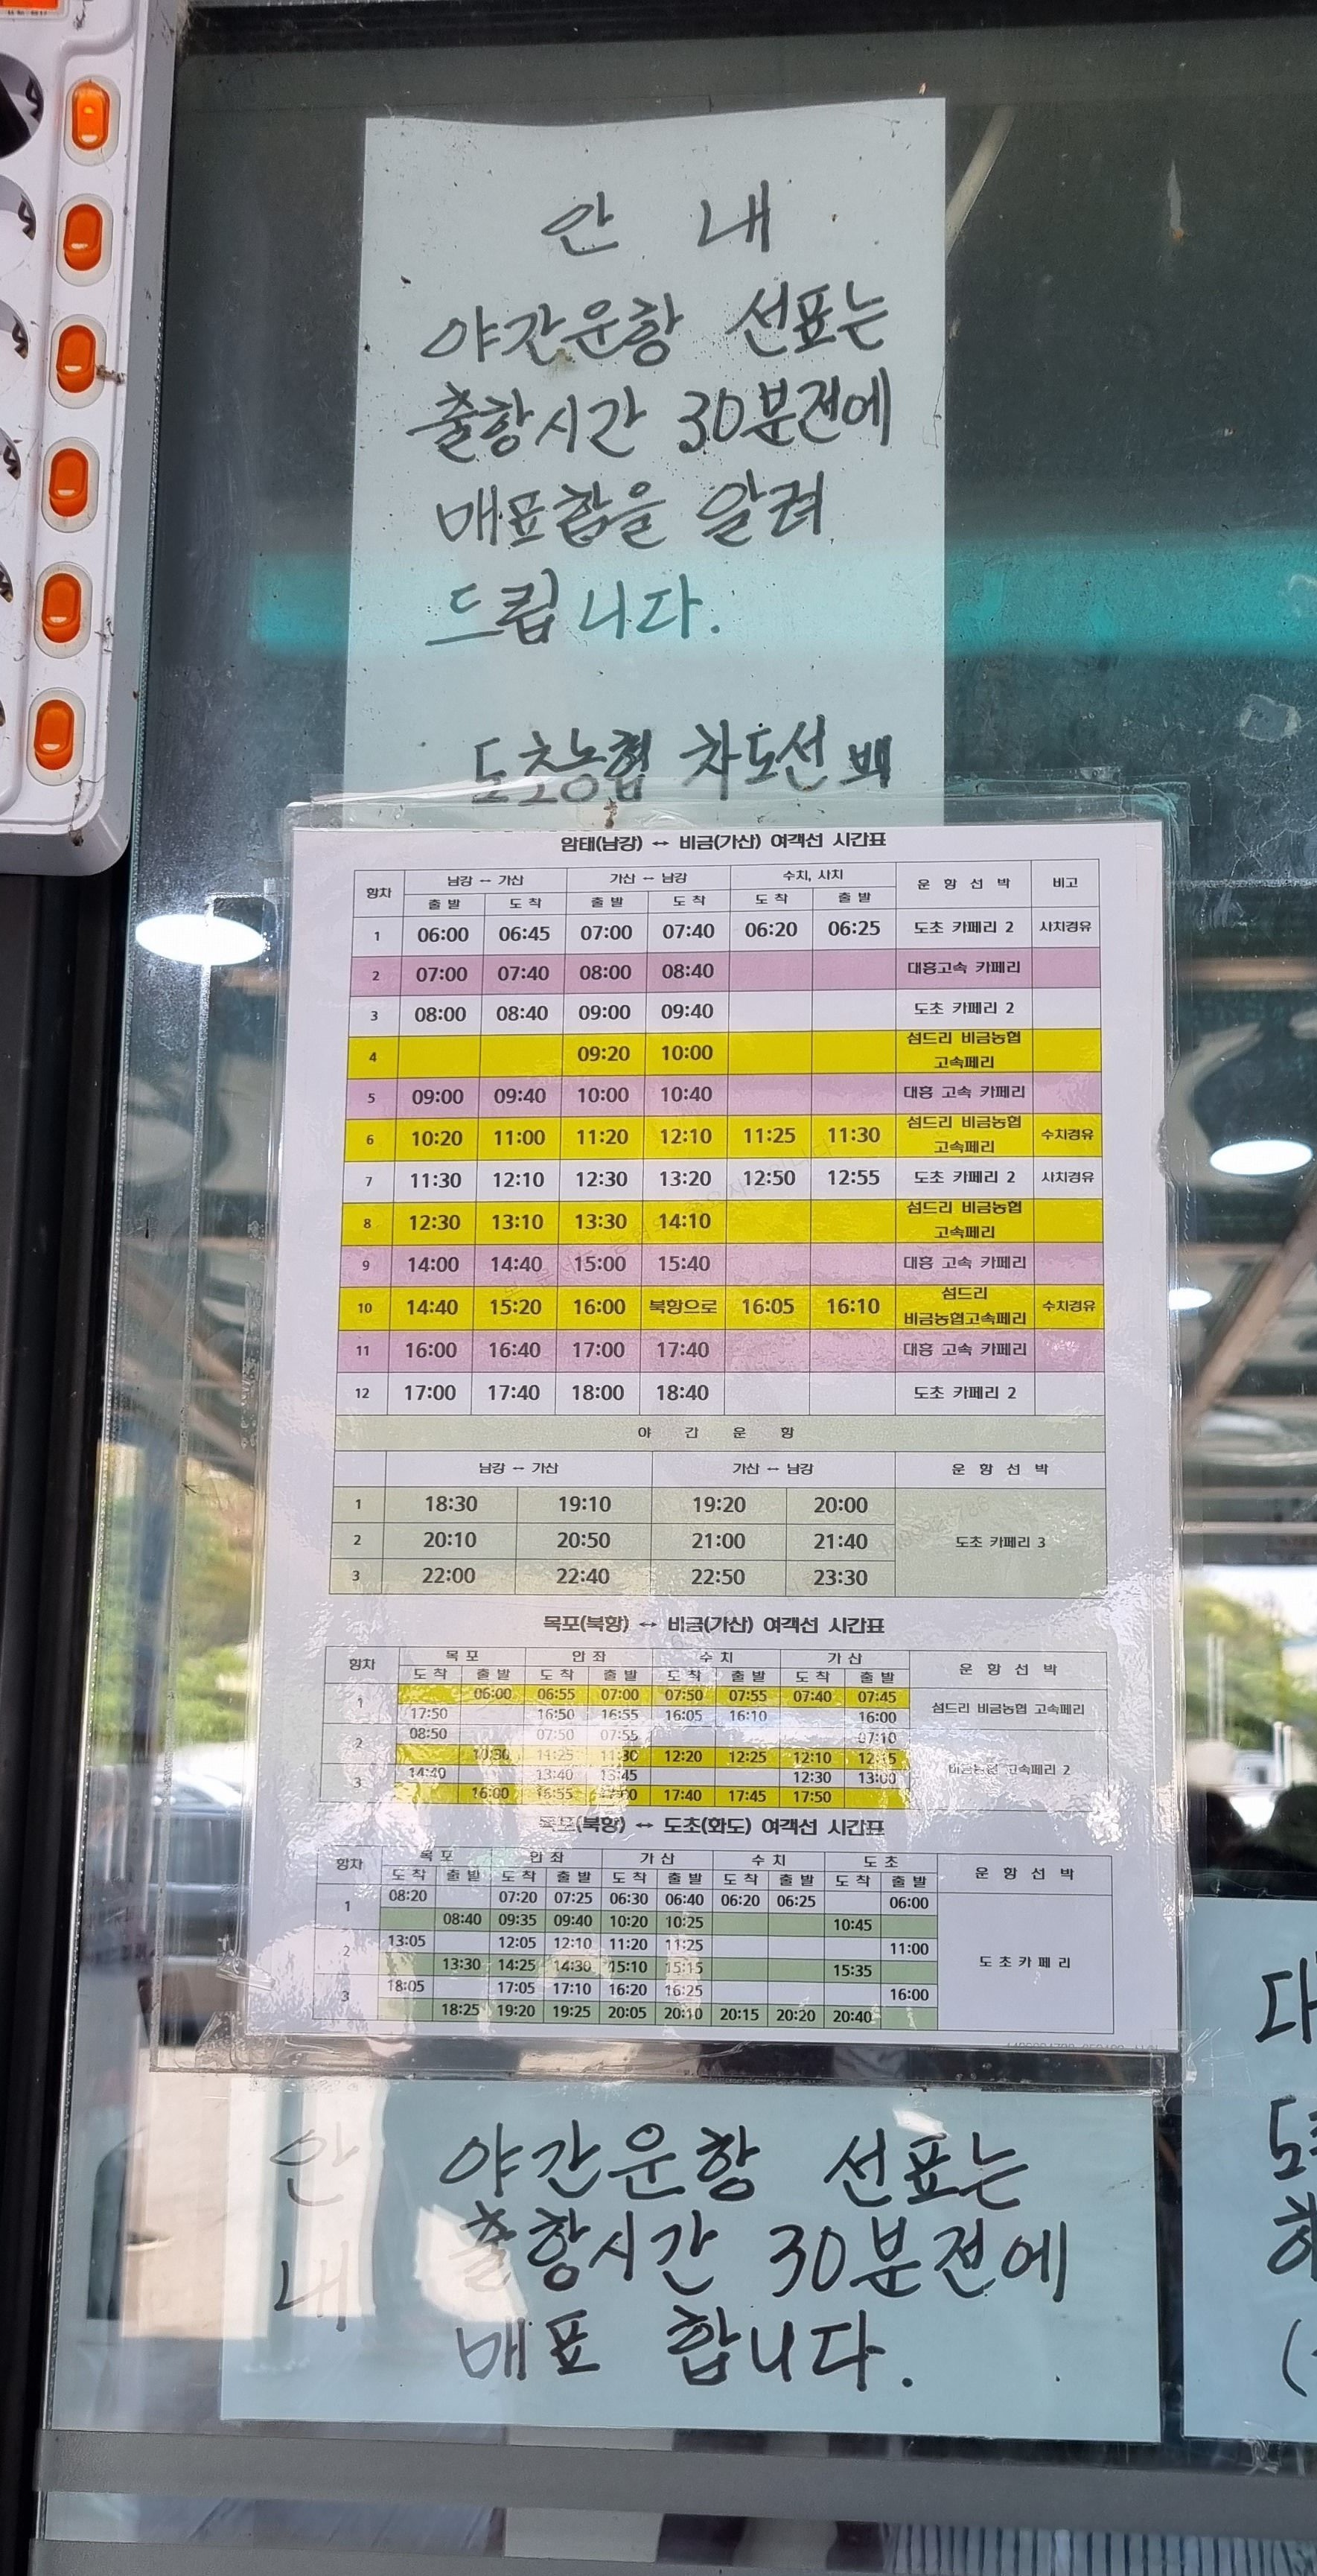 안 내
야간운항 선표는
출항시간 30분전에
매표함을 알려
드립니다.
도초농협 차도선 백
암태(남강) ↔ 비금(가산) 여객선 시간표
항차 남강 ↔ 가산 가산 ↔ 남강 수치, 사치 운 항 선 박 비고
출 발 도 착 출 발 도 착 도 착 출 발
1 06:00 06:45 07:00 07:40 06:20 06:25 도초 카페리 2 사치경유
2 07:00 07:40 08:00 08:40 대흥고속 카페리
3 08:00 08:40 09:00 09:40 도초 카페리 2
4 09:20 10:00 섬드리 비금농협
고속페리
5 09:00 09:40 10:00 10:40 대흥 고속 카페리
6 10:20 11:00 11:20 12:10 11:25 11:30 섬드리 비금농협 수치경유
고속페리
7 11:30 12:10 12:30 13:20 12:50 12:55 도초 카페리 2 사치경유
8 12:30 13:10 13:30 14:10 섬드리 비금농협
고속페리
9 14:00 14:40 15:00 15:40 대흥 고속 카페리
10 14:40 15:20 16:00 북항으로 16:05 16:10 섬드리 수치경유
비금농협고속페리
11 16:00 16:40 17:00 17:40 대흥 고속 카페리
12 17:00 17:40 18:00 18:40 도초 카페리 2
야 간 운 항
남강 ↔ 가산 가산 ↔ 남강 운 항 선 박
1 18:30 19:10 19:20 20:00
2 20:10 20:50 21:00 21:40 도초 카페리 3
3 22:00 22:40 22:50 23:30
목포(북항) ↔ 비금(가산) 여객선 시간표
항차 목 포 안 좌 수 치 가 산 운 항 선 박
도 착 출 발 도 착 출 발 도 착 출 발 도 착 출 발
1 06:00 06:55 07:00 07:50 07:55 07:40 07:45 섬드리 비금농협 고속페리
17:50 16:50 16:55 16:05 16:10 16:00
2 08:50 07:50 07:55 07:10
10:30 11:25 11:30 12:20 12:25 12:10 12:15 비금농협 고속페리 2
3 14:40 13:40 13:45 12:30 13:00
16:00 16:55 17:40 17:45 17:50
목포(북항) ↔ 도초(화도) 여객선 시간표
항차 목 포 안 좌 가 산 수 치 도 초 운 항 선 박
도 착 출 발 도 착 출 발 도 착 출 발 도 착 출 발 도 착 출 발
1 08:20 07:20 07:25 06:30 06:40 06:20 06:25 06:00
08:40 09:35 09:40 10:20 10:25 10:45
2 13:05 12:05 12:10 11:20 11:25 11:00 도 초 카 페 리
13:30 14:25 14:30 15:10 15:15 15:35
3 18:05 17:05 17:10 16:20 16:25 16:00
18:25 19:20 19:25 20:05 20:10 20:15 20:20 20:40
안 내
야간운항 선표는
출항시간 30분전에
매표 합니다.